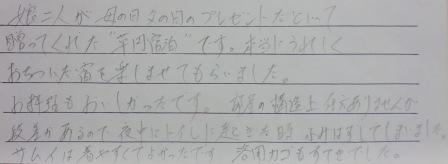 娘二人が母の日父の日のプレゼントだといって
贈ってくれた"草円宿泊"です。本当にうれしく
おちついた宿を楽しませてもらいました。
お料理もおいしかったです。部屋の構造上仕方ありませんが
段差があるので夜中にトイレに起きた時よれはずしてしまいました。
サムイは着やすくてよかったです 着用カゴもすてきでした。